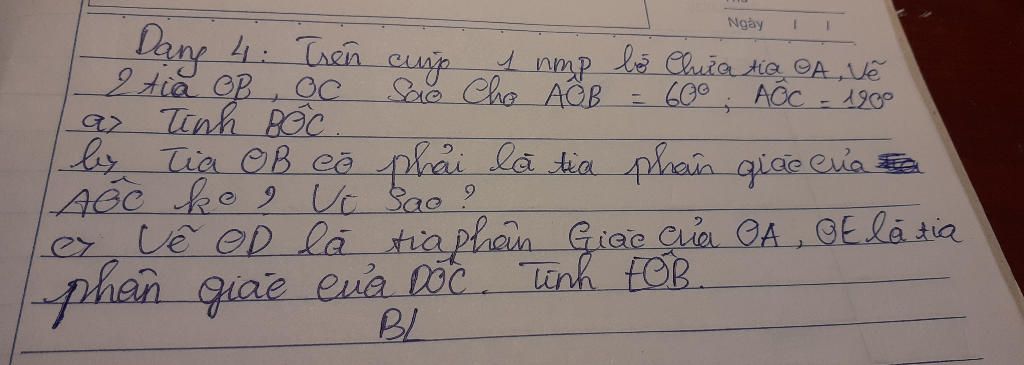 Ngày / /
Dạng 4: Trên cùng 1 nmp bờ chứa tia OA, Vẽ
2 tia OB, OC Sao Cho AÔB = 60°; AÔC = 120°
a> Tính BÔC.
b> Tia OB có phải là tia phân giác của
AÔC ko? Vì Sao?
c> Vẽ OD là tia phân Giác của OA, OE là tia
phân giác của DÔC. Tính EÔB.
BL